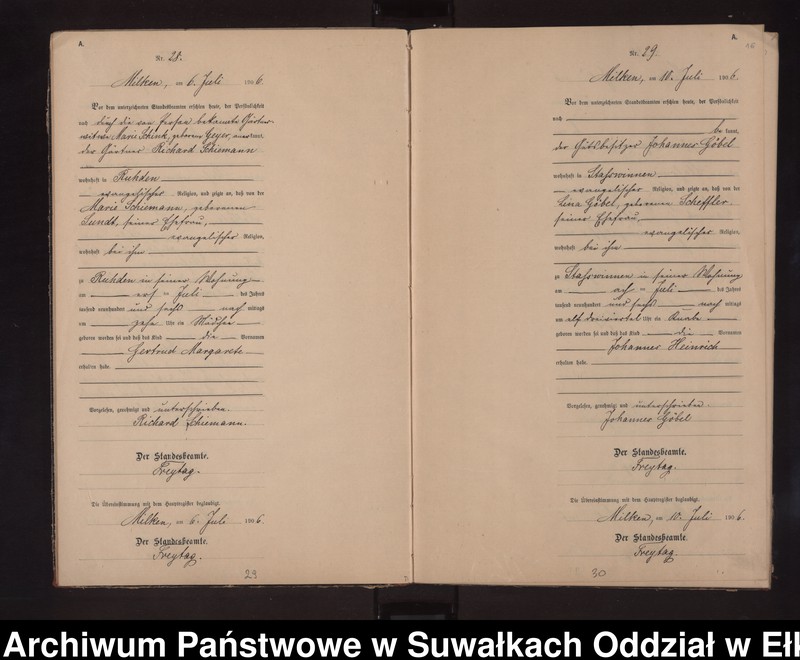 A.
Nr. 28.
Milken, am 6. Juli 1906.
Vor dem unterzeichneten Standesbeamten erschien heute, der Persönlichkeit
nach durch die von Person bekannte Gärtner-
witwe Marie Schink, geborene Geyer, anerkannt,
der Gärtner Richard Schiemann
wohnhaft in Ruhden
evangelischer Religion, und zeigte an, daß von der
Marie Schiemann, geborenen
Sundt, seiner Ehefrau,
evangelischer Religion,
wohnhaft bei ihm
zu Ruhden in seiner Wohnung
am ersten Juli des Jahres
tausend neunhundert und sechs nach mittags
um zehn Uhr ein Mädchen
geboren worden sei und daß das Kind die Vornamen
Gertrud Margarete
erhalten habe.
Vorgelesen, genehmigt und unterschrieben.
Richard Schiemann.
Der Standesbeamte.
Freytag.
Die Übereinstimmung mit dem Hauptregister beglaubigt.
Milken, am 6. Juli 1906.
Der Standesbeamte.
Freytag.
29
A.
Nr. 29.
Milken, am 10. Juli 1906.
Vor dem unterzeichneten Standesbeamten erschien heute, der Persönlichkeit
nach
be kannt,
der Gutsbesitzer Johannes Göbel
wohnhaft in Staßwinnen
evangelischer Religion, und zeigte an, daß von der
Lina Göbel, geborenen Scheffler,
seiner Ehefrau,
evangelischer Religion,
wohnhaft bei ihm
zu Staßwinnen in seiner Wohnung
am achten Juli des Jahres
tausend neunhundert und sechs nach mittags
um elf dreiviertel Uhr ein Knabe
geboren worden sei und daß das Kind die Vornamen
Johannes Heinrich
erhalten habe.
Vorgelesen, genehmigt und unterschrieben.
Johannes Göbel
Der Standesbeamte.
Freytag.
Die Übereinstimmung mit dem Hauptregister beglaubigt.
Milken, am 10. Juli 1906.
Der Standesbeamte.
Freytag.
30
Archiwum Państwowe w Suwałkach Oddział w Eł